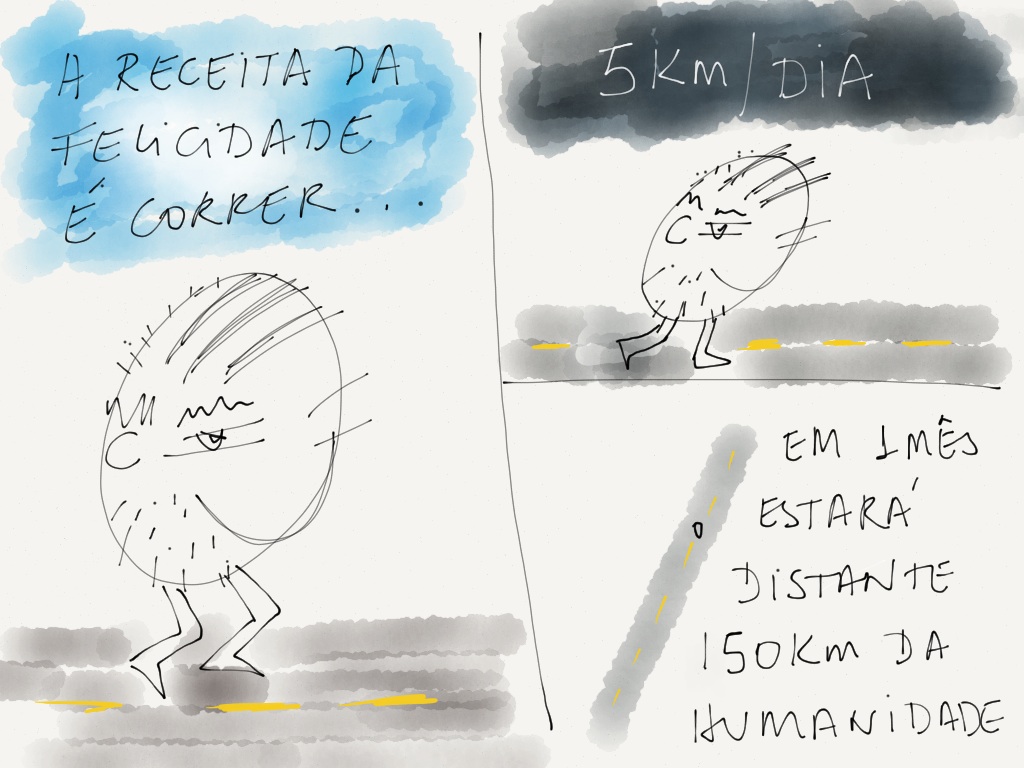 A RECEITA DA
FELICIDADE
É CORRER...
5Km/DIA
EM 1 MÊS
ESTARÁ
DISTANTE
150Km DA
HUMANIDADE